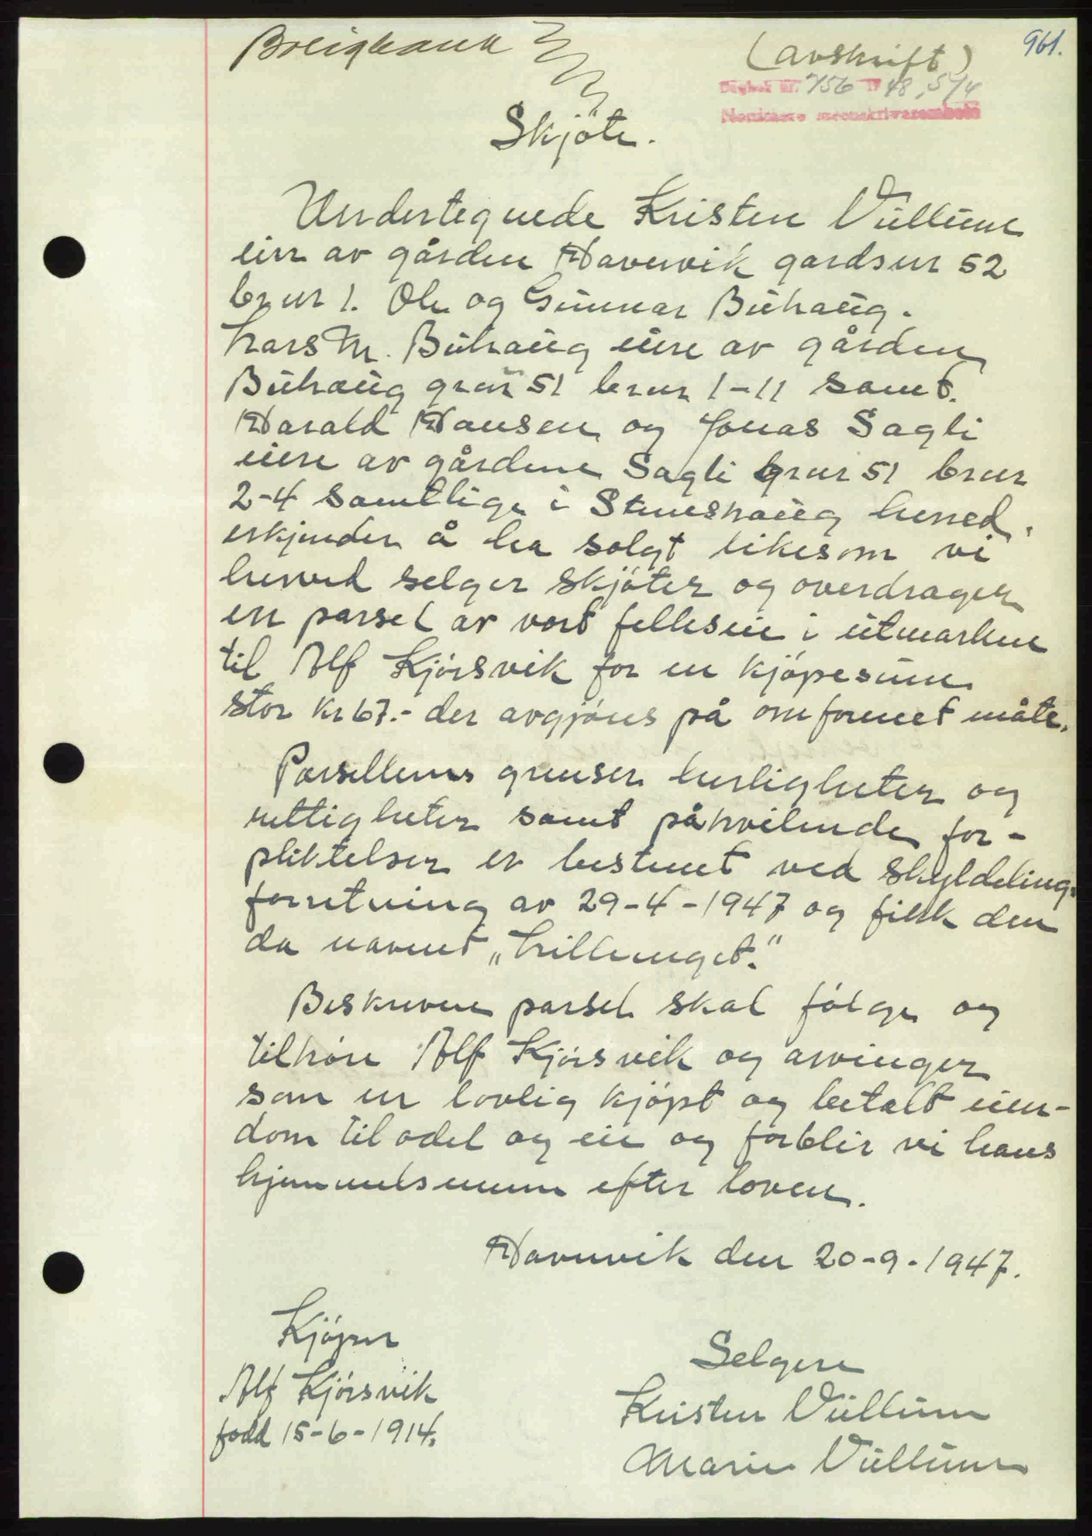 961.
(avskrift)
Dagbok nr. 756 19 48, 5/4
Nordmøre sorenskriverembete
Skjöte.
Undertegnede Kristen Vullum
eier av gården Havnvik gardsnr 52
brnr 1. Ole og Gunnar Buhaug.
Lars M. Buhaug eiere av gården
Buhaug grnr 51 brnr 1-11 samt.
Harald Hansen og Jonas Sagli
eiere av gårdene Sagli grnr 51 brnr
2-4 samtlige i Stemshaug herred.
erkjender å ha solgt likesom vi
herved selger skjöter og overdrager
en parsel av vort felleseie i utmarken
til Alf Kjörsvik for en kjöpesum
stor kr 67.- der avgjöres på omforenet måte.
Parsellens grenser herligheter og
rettigheter samt påhvilende for-
pliktelser er bestemt ved skylddeling-
forretning av 29-4-1947 og fikk den
da navnet „Lillenget."
Beskrevne parsel skal fölge og
tilhöre Alf Kjörsvik og arvinger
som en lovlig kjöpt og betalt eien-
dom til odel og eie og forblir vi hans
hjemmelsmenn efter loven.
Havnvik den 20-9-1947.
Kjöper
Alf Kjörsvik
född 15-6-1914.
Selgere
Kristen Vullum
Marie Vullum